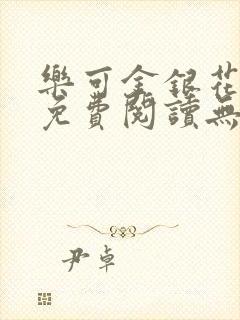 樂可金銀花
免費閱讀無
尹卓